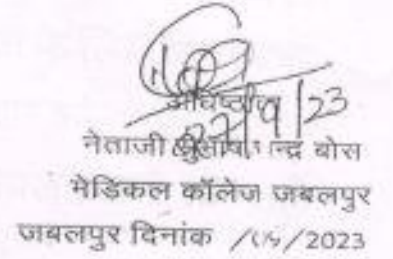 अधिष्ठाता
नेताजी सुभाष चन्द्र बोस
मेडिकल कॉलेज जबलपुर
जबलपुर दिनांक /09/2023